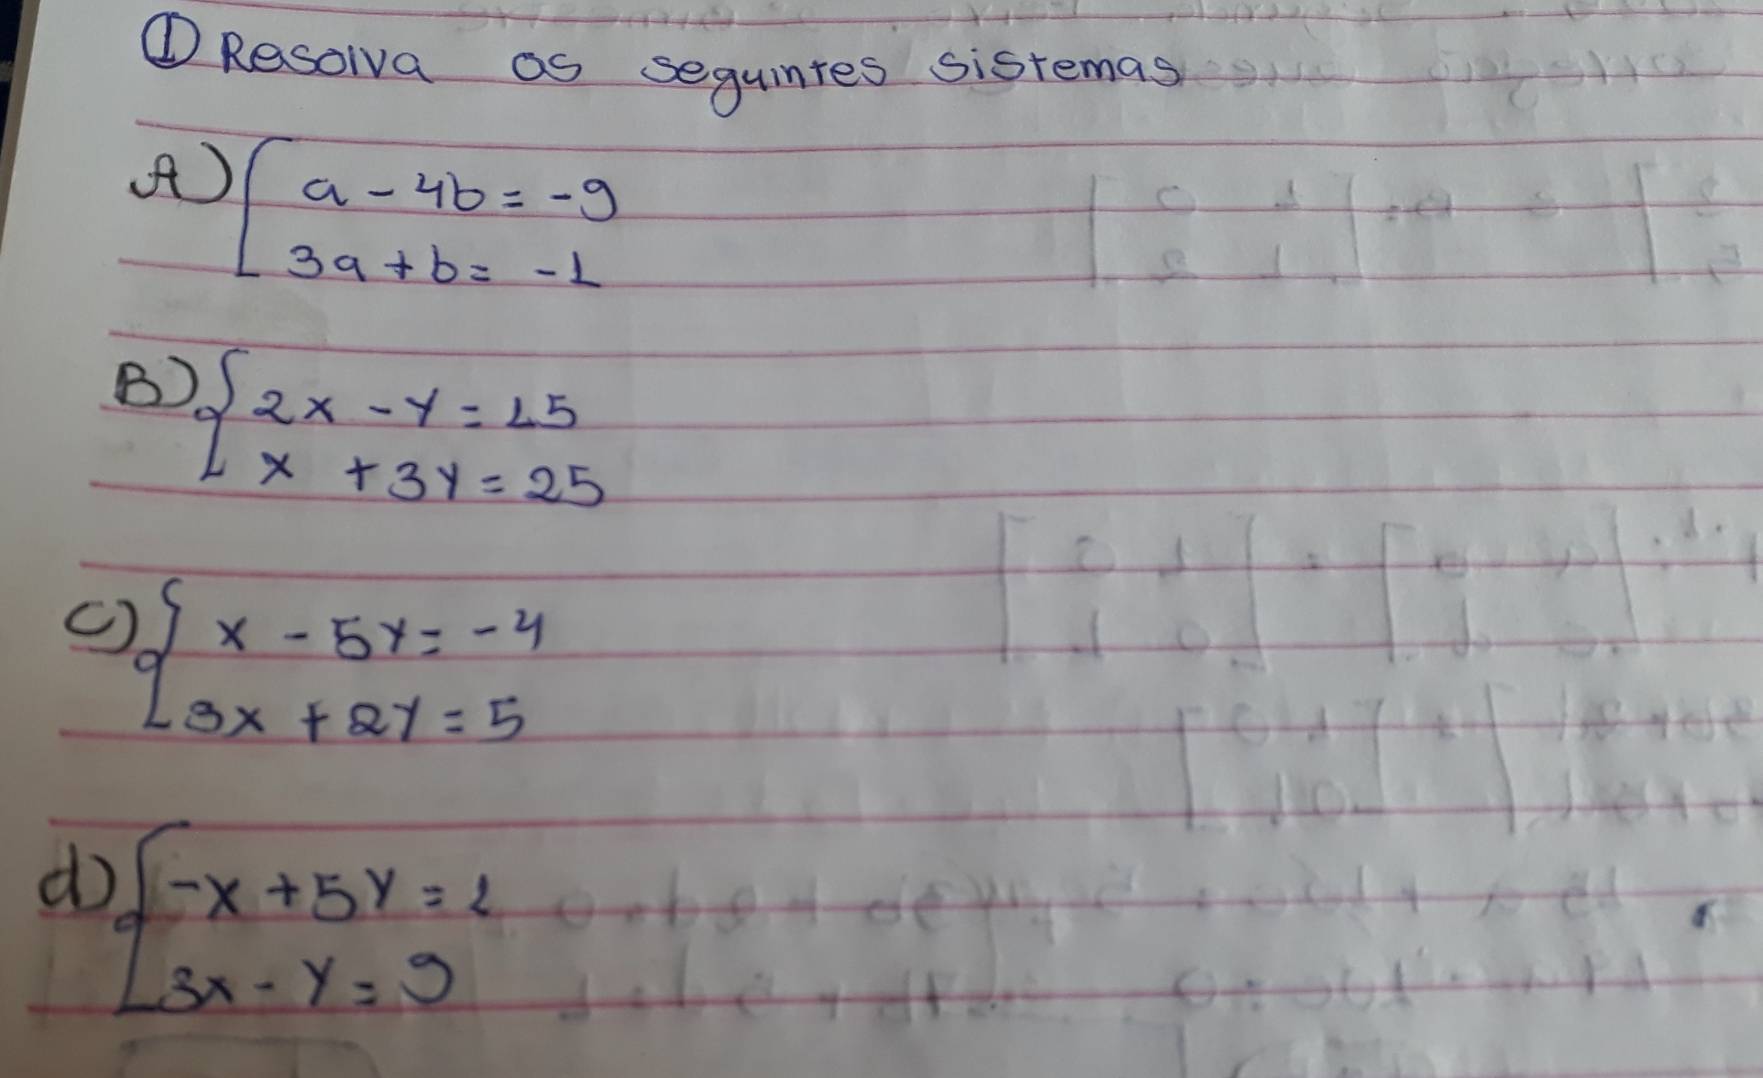 ① Resolva os seguintes sistemas
A) { a - 4b = -9
3a + b = -1
B) { 2x - y = 15
x + 3y = 25
C) { x - 5y = -4
3x + 2y = 5
d) { -x + 5y = 1
3x - y = 9